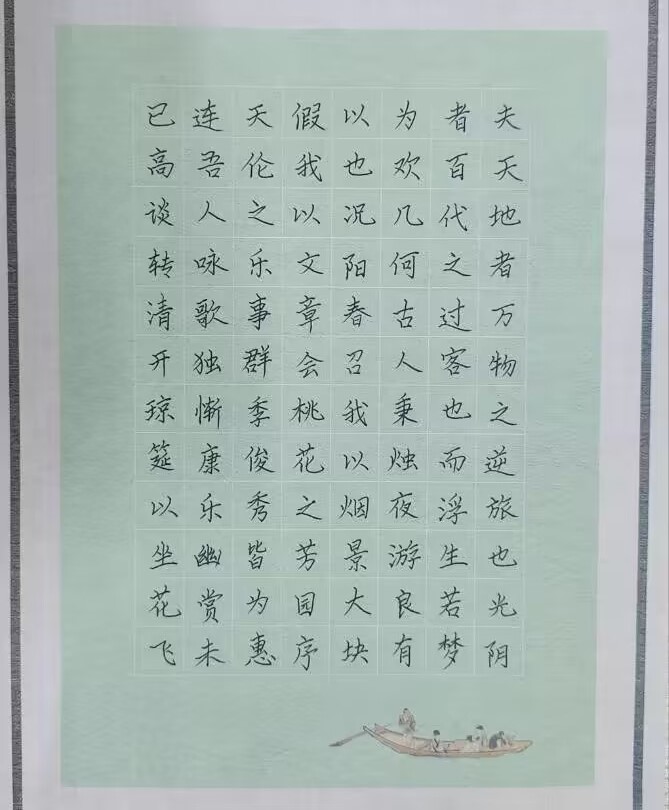 夫天地者万物之逆旅也光阴
者百代之过客也而浮生若梦
为欢几何古人秉烛夜游良有
以也况阳春召我以烟景大块
假我以文章会桃花之芳园序
天伦之乐事群季俊秀皆为惠
连吾人咏歌独惭康乐幽赏未
已高谈转清开琼筵以坐花飞